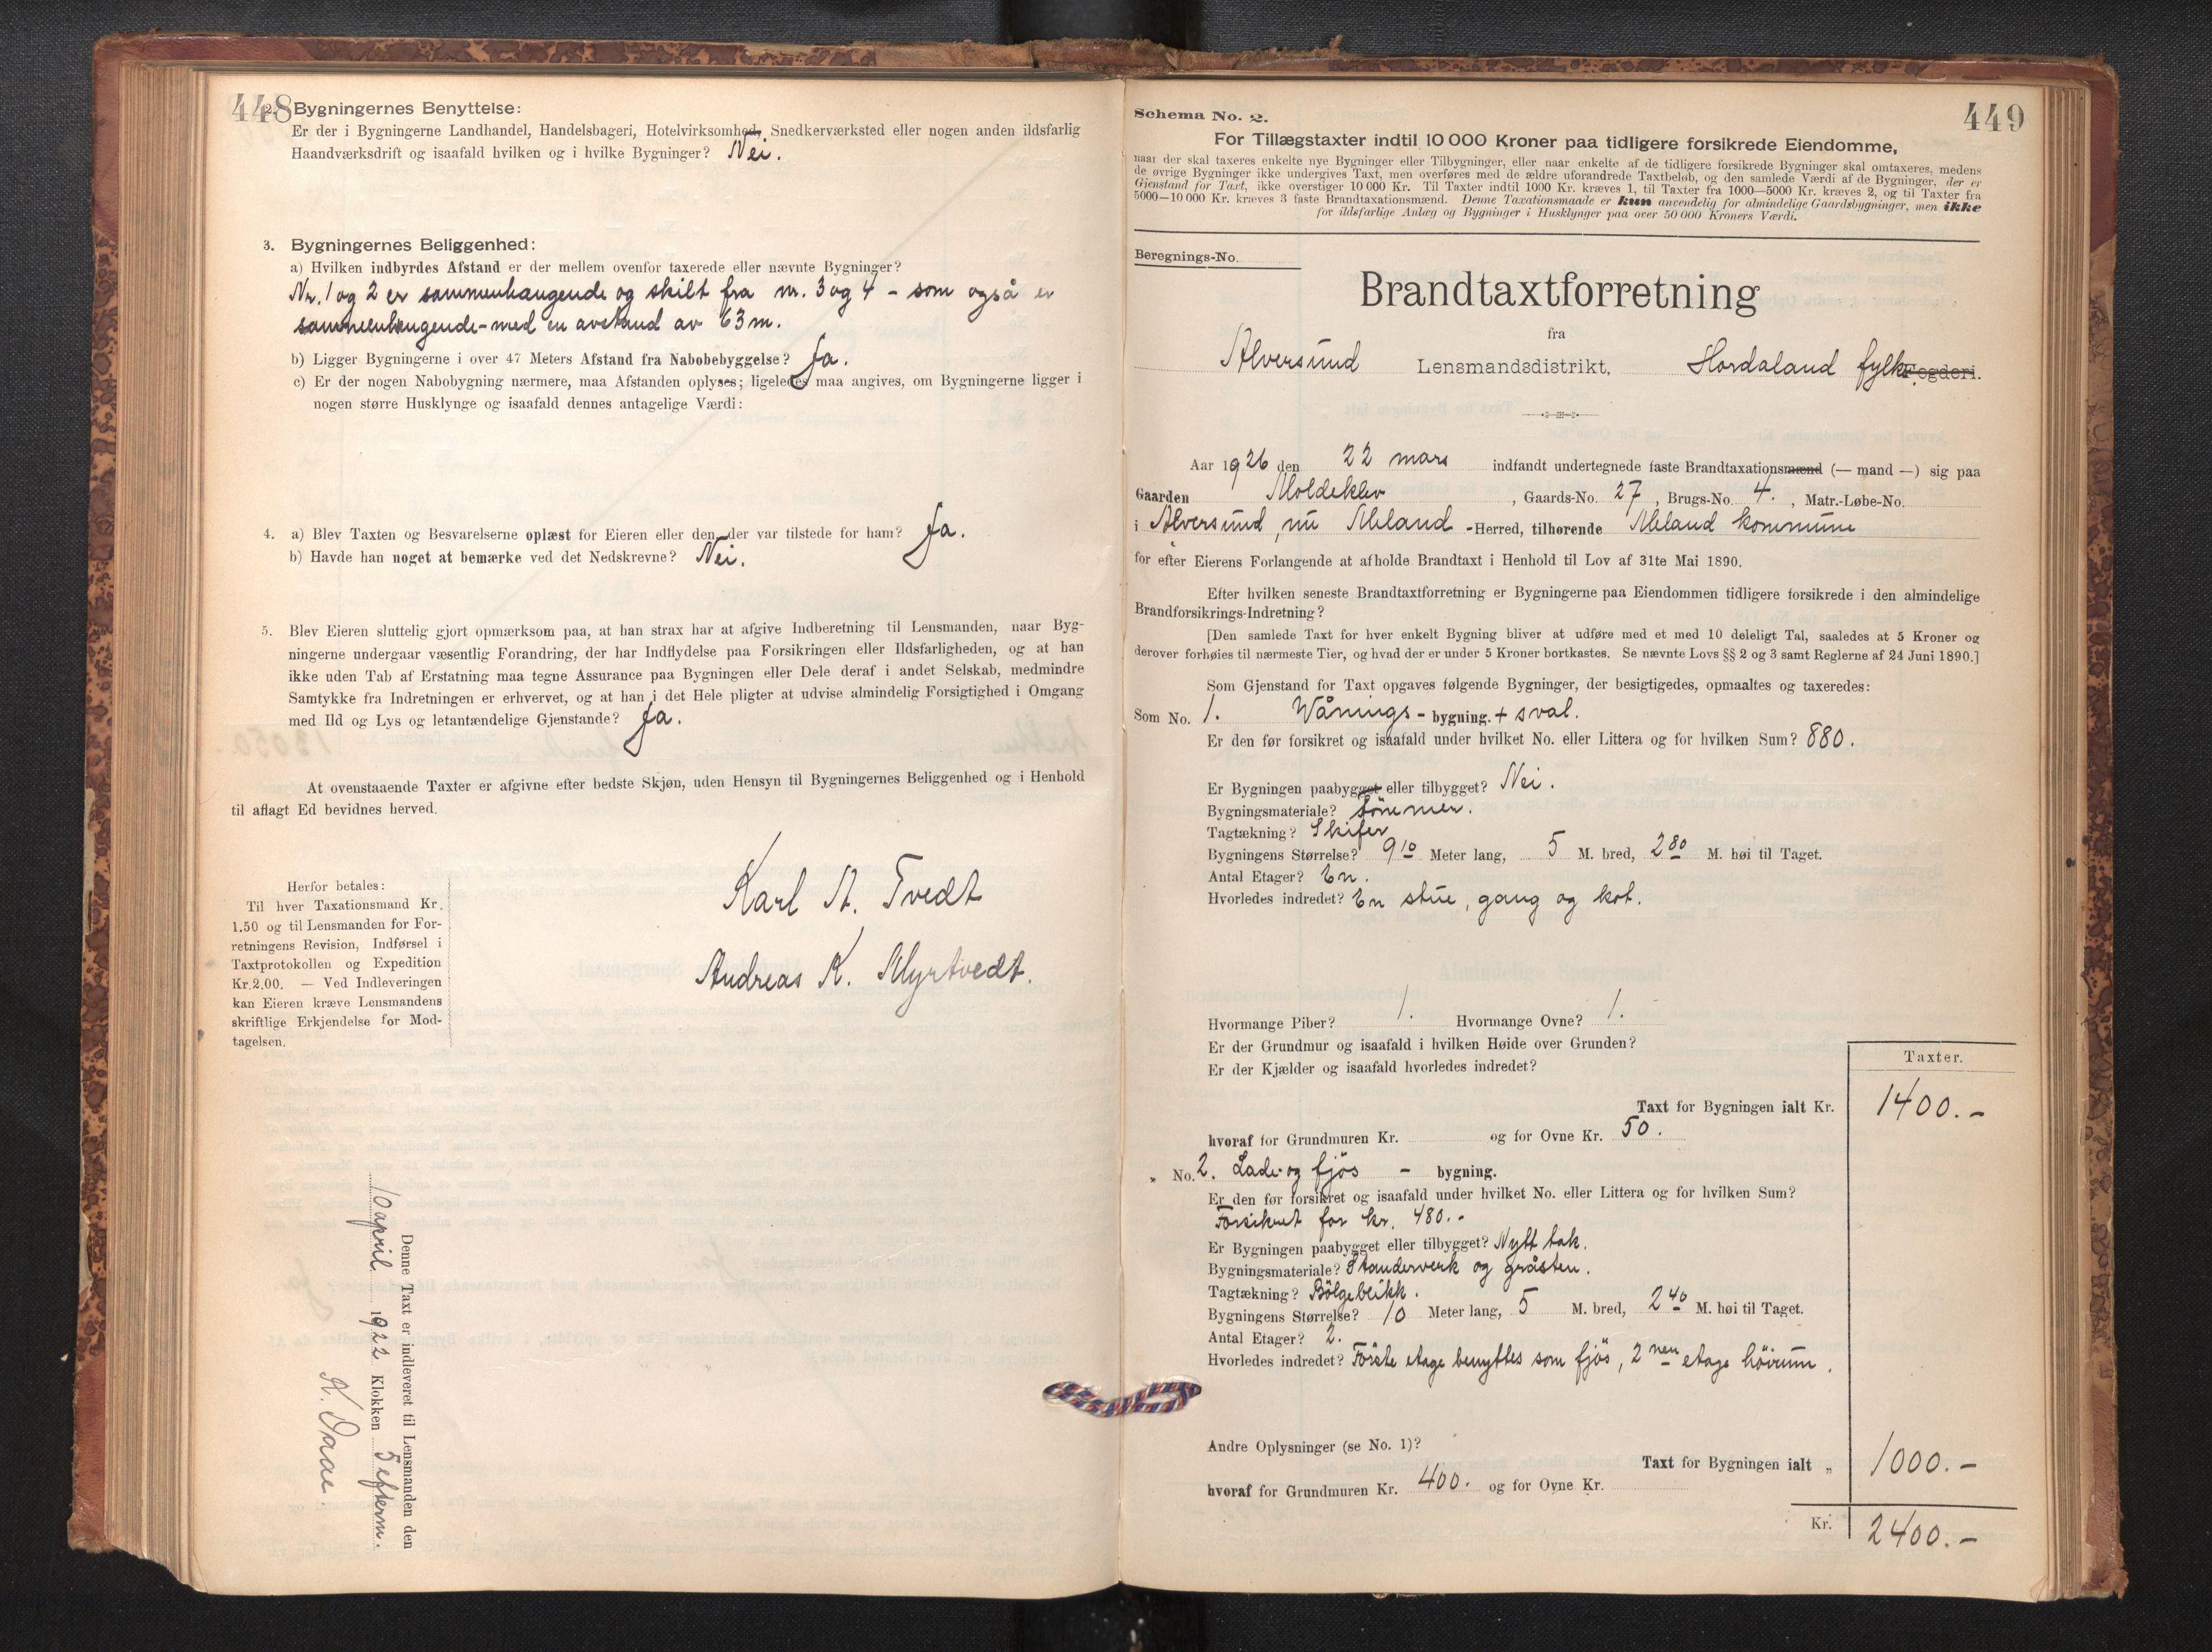 448
2. Bygningernes Benyttelse:
Er der i Bygningerne Landhandel, Handelsbageri, Hotelvirksomhed, Snedkerværksted eller nogen anden ildsfarlig
Haandværksdrift og isaafald hvilken og i hvilke Bygninger? Nei.
3. Bygningernes Beliggenhed:
a) Hvilken indbyrdes Afstand er der mellem ovenfor taxerede eller nævnte Bygninger?
Nr. 1 og 2 er sammenhangende og skilt fra nr. 3 og 4 - som også er
sammenhengende - med en avstand av 63 m.
b) Ligger Bygningerne i over 47 Meters Afstand fra Nabobebyggelse? Ja.
c) Er der nogen Nabobygning nærmere, maa Afstanden oplyses; ligeledes maa angives, om Bygningerne ligger i
nogen større Husklynge og isaafald dennes antagelige Værdi:
4. a) Blev Taxten og Besvarelserne oplæst for Eieren eller den, der var tilstede for ham? Ja.
b) Havde han noget at bemærke ved det Nedskrevne? Nei.
5. Blev Eieren sluttelig gjort opmærksom paa, at han strax har at afgive Indberetning til Lensmanden, naar Byg-
ningerne undergaar væsentlig Forandring, der har Indflydelse paa Forsikringen eller Ildsfarligheden, og at han
ikke uden Tab af Erstatning maa tegne Assurance paa Bygningen eller Dele deraf i andet Selskab, medmindre
Samtykke fra Indretningen er erhvervet, og at han i det Hele pligter at udvise almindelig Forsigtighed i Omgang
med Ild og Lys og letantændelige Gjenstande? Ja.
At ovenstaaende Taxter er afgivne efter bedste Skjøn, uden Hensyn til Bygningernes Beliggenhed og i Henhold
til aflagt Ed bevidnes herved.
Karl A. Tvedt
Andreas K. Myrtvedt.
Herfor betales:
Til hver Taxationsmand Kr.
1.50 og til Lensmanden for For-
retningens Revision, Indførsel i
Taxtprotokollen og Expedition
Kr. 2.00. — Ved Indleveringen
kan Eieren kræve Lensmandens
skriftlige Erkjendelse for Mod-
tagelsen.
Denne Taxt er indleveret til Lensmanden den
10 april 1922 Klokken 5 efterm.
K. Daae.
449
Schema No. 2.
For Tillægstaxter indtil 10 000 Kroner paa tidligere forsikrede Eiendomme,
naar der skal taxeres enkelte nye Bygninger eller Tilbygninger, eller naar enkelte af de tidligere forsikrede Bygninger skal omtaxeres, medens
de øvrige Bygninger ikke undergives Taxt, men overføres med de ældre uforandrede Taxtbeløb, og den samlede Værdi af de Bygninger, der er
Gjenstand for Taxt, ikke overstiger 10 000 Kr. Til Taxter indtil 1000 Kr. kræves 1, til Taxter fra 1000—5000 Kr. kræves 2, og til Taxter fra
5000—10 000 Kr. kræves 3 faste Brandtaxationsmænd. Denne Taxationsmaade er kun anvendelig for almindelige Gaardsbygninger, men ikke
for ildsfarlige Anlæg og Bygninger i Husklynger paa over 50 000 Kroners Værdi.
Beregnings-No.
Brandtaxtforretning
fra
Alversund Lensmandsdistrikt, Hordaland fylke Fogderi.
Aar 1926 den 22 mars indfandt undertegnede faste Brandtaxationsmænd (— mand —) sig paa
Gaarden Moldeklev, Gaards-No. 27, Brugs-No. 4., Matr.-Løbe-No.
i Alversund, nu Meland -Herred, tilhørende Meland kommune
for efter Eierens Forlangende at afholde Brandtaxt i Henhold til Lov af 31te Mai 1890.
Efter hvilken seneste Brandtaxtforretning er Bygningerne paa Eiendommen tidligere forsikrede i den almindelige
Brandforsikrings-Indretning?
[Den samlede Taxt for hver enkelt Bygning bliver at udføre med et med 10 deleligt Tal, saaledes at 5 Kroner og
derover forhøies til nærmeste Tier, og hvad der er under 5 Kroner bortkastes. Se nævnte Lovs §§ 2 og 3 samt Reglerne af 24 Juni 1890.]
Som Gjenstand for Taxt opgaves følgende Bygninger, der besigtigedes, opmaaltes og taxeredes:
Som No. 1. Wånings - bygning. + sval.
Er den før forsikret og isaafald under hvilket No. eller Littera og for hvilken Sum? 880.
Er Bygningen paabygget eller tilbygget? Nei.
Bygningsmateriale? tömmer.
Tagtækning? Skifer
Bygningens Størrelse? 9 10 Meter lang, 5 M. bred, 2 80 M. høi til Taget.
Antal Etager? En.
Hvorledes indredet? En stue, gang og kot.
Hvormange Piber? 1. Hvormange Ovne? 1.
Er der Grundmur og isaafald i hvilken Høide over Grunden?
Er der Kjælder og isaafald hvorledes indredet?
Taxter.
Taxt for Bygningen ialt Kr. 1400.-
hvoraf for Grundmuren Kr. og for Ovne Kr. 50.
" No. 2. Lade- og fjös - bygning.
Er den før forsikret og isaafald under hvilket No. eller Littera og for hvilken Sum?
Forsikret for kr. 480.-
Er Bygningen paabygget eller tilbygget? Nytt tak.
Bygningsmateriale? Standerverk og gråsten.
Tagtækning? Bölgeblikk.
Bygningens Størrelse? 10 Meter lang, 5 M. bred, 2 40 M. høi til Taget.
Antal Etager? 2.
Hvorledes indredet? Förste etage benyttes som fjös, 2 nen etage höirum.
Andre Oplysninger (se No. 1)?
Taxt for Bygningen ialt " 1000.-
hvoraf for Grundmuren Kr. 400. og for Ovne Kr.
Kr. 2400.-